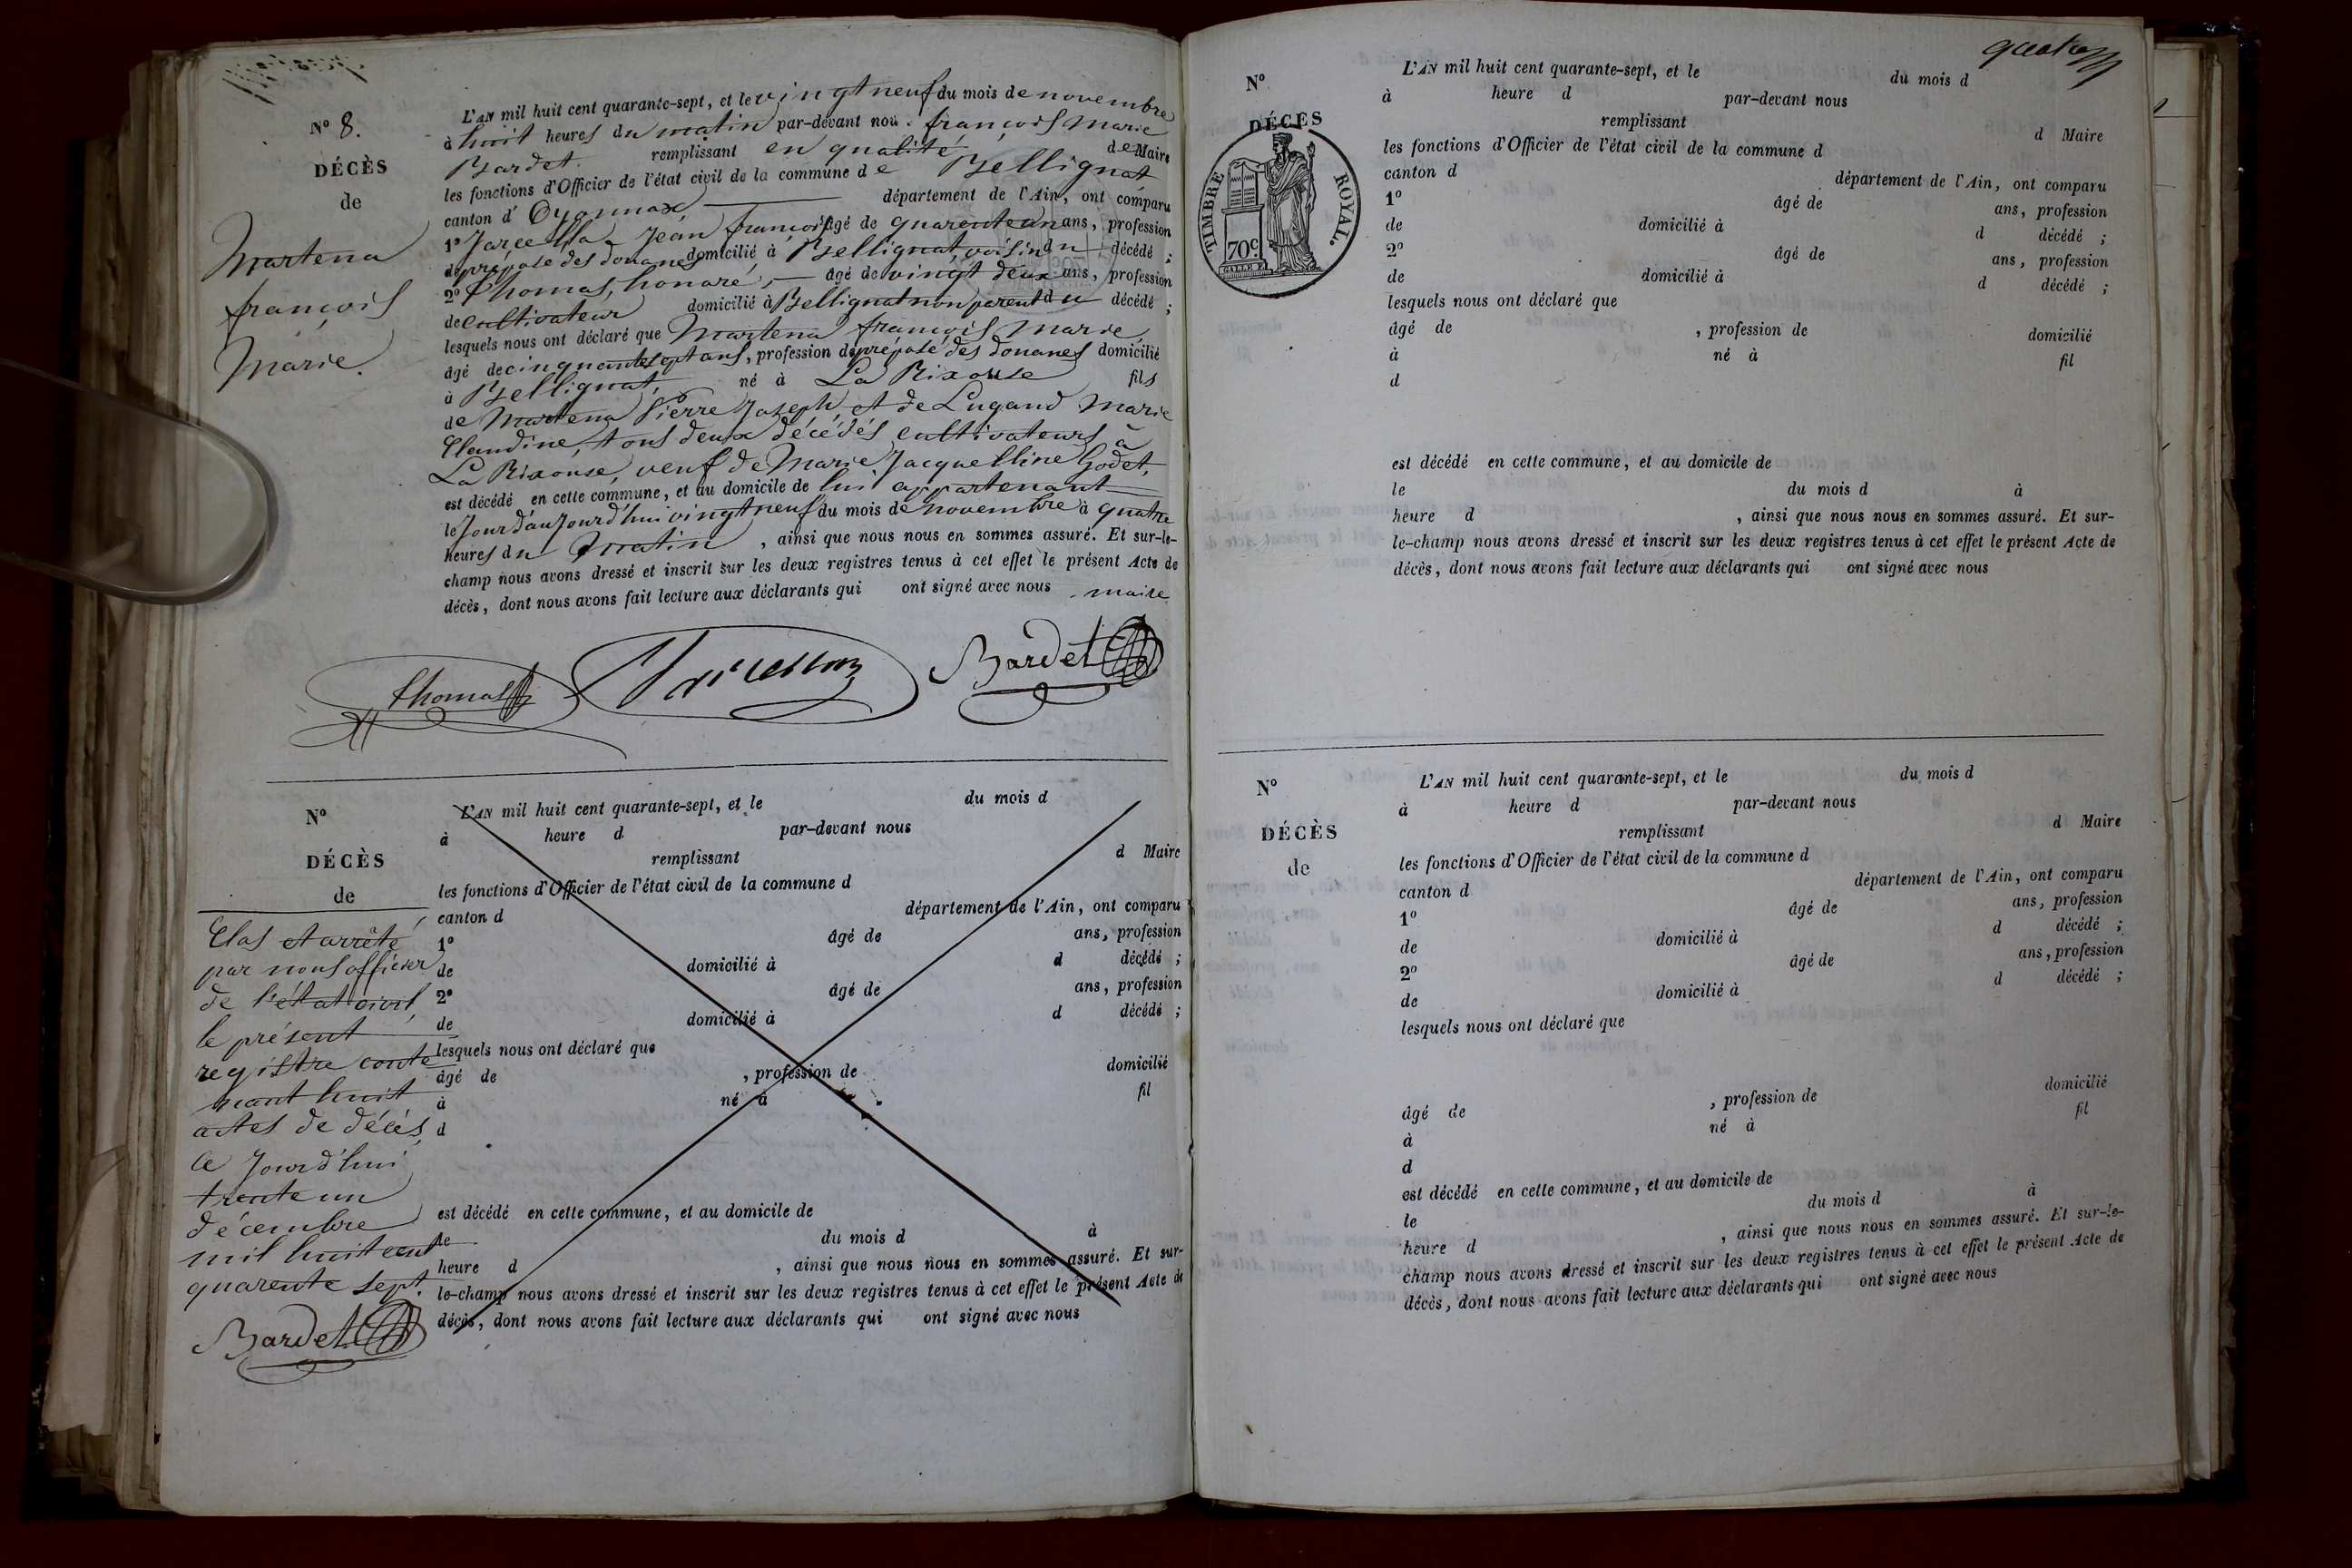 N° 8.
DÉCÈS
de
Martena
françois
Marie.
L'AN mil huit cent quarante-sept, et le vingt neuf du mois de novembre
à huit heures du matin par-devant nou françois Marie
Bardet remplissant en qualité de Maire
les fonctions d'Officier de l'état civil de la commune de Bellignat
canton d'Oyonnax, département de l'Ain, ont comparu
1° Jean françois âgé de quarente un ans, profession
de préposé des douanes domicilié à Bellignat, voisin du décédé ;
2° Thomas, honoré, âgé de vingt deux ans, profession
de cultivateur domicilié à Bellignat non parent du décédé ;
lesquels nous ont déclaré que Martena françois Marie,
âgé de cinquante sept ans, profession de préposé des douanes domicilié
à Bellignat, né à La Rixouse fils
de Martena Pierre Joseph, et de Lugand Marie
Claudine, tous deux décédés cultivateurs à
La Rixouse, veuf de Marie Jacquelline Godet,
est décédé en cette commune, et au domicile de lui appartenant
le Jourd'aujourd'hui vingt neuf du mois de novembre à quatre
heures du matin, ainsi que nous nous en sommes assuré. Et sur-le-
champ nous avons dressé et inscrit sur les deux registres tenus à cet effet le présent Acte de
décès, dont nous avons fait lecture aux déclarants qui ont signé avec nous maire
Thomas Bardet
N°
DÉCÈS
de
Clos et arrêté
par nous officier
de l'état civil,
le présent
registre conte
nant huit
actes de décés,
ce Jourd'hui
trente un
décembre
mil huit cent
quarente sept.
Bardet
L'AN mil huit cent quarante-sept, et le du mois d
à heure d par-devant nous
remplissant d Maire
les fonctions d'Officier de l'état civil de la commune d
canton d département de l'Ain, ont comparu
1° âgé de ans, profession
de domicilié à d décédé ;
2° âgé de ans, profession
de domicilié à d décédé ;
lesquels nous ont déclaré que
âgé de , profession de domicilié
à né à fil
d
est décédé en cette commune, et au domicile de
le du mois d à
heure d , ainsi que nous nous en sommes assuré. Et sur-
le-champ nous avons dressé et inscrit sur les deux registres tenus à cet effet le présent Acte de
décès, dont nous avons fait lecture aux déclarants qui ont signé avec nous
N°
DÉCÈS
TIMBRE ROYAL.
70 C
L'AN mil huit cent quarante-sept, et le du mois d
à heure d par-devant nous
remplissant d Maire
les fonctions d'Officier de l'état civil de la commune d
canton d département de l'Ain, ont comparu
1° âgé de ans, profession
de domicilié à d décédé ;
2° âgé de ans, profession
de domicilié à d décédé ;
lesquels nous ont déclaré que
âgé de , profession de domicilié
à né à fil
d
est décédé en cette commune, et au domicile de
le du mois d à
heure d , ainsi que nous nous en sommes assuré. Et sur-
le-champ nous avons dressé et inscrit sur les deux registres tenus à cet effet le présent Acte de
décès, dont nous avons fait lecture aux déclarants qui ont signé avec nous
N°
DÉCÈS
de
L'AN mil huit cent quarante-sept, et le du mois d
à heure d par-devant nous
remplissant d Maire
les fonctions d'Officier de l'état civil de la commune d
canton d département de l'Ain, ont comparu
1° âgé de ans, profession
de domicilié à d décédé ;
2° âgé de ans, profession
de domicilié à d décédé ;
lesquels nous ont déclaré que
âgé de , profession de domicilié
à né à fil
d
est décédé en cette commune, et au domicile de
le du mois d à
heure d , ainsi que nous nous en sommes assuré. Et sur-le-
champ nous avons dressé et inscrit sur les deux registres tenus à cet effet le présent Acte de
décès, dont nous avons fait lecture aux déclarants qui ont signé avec nous